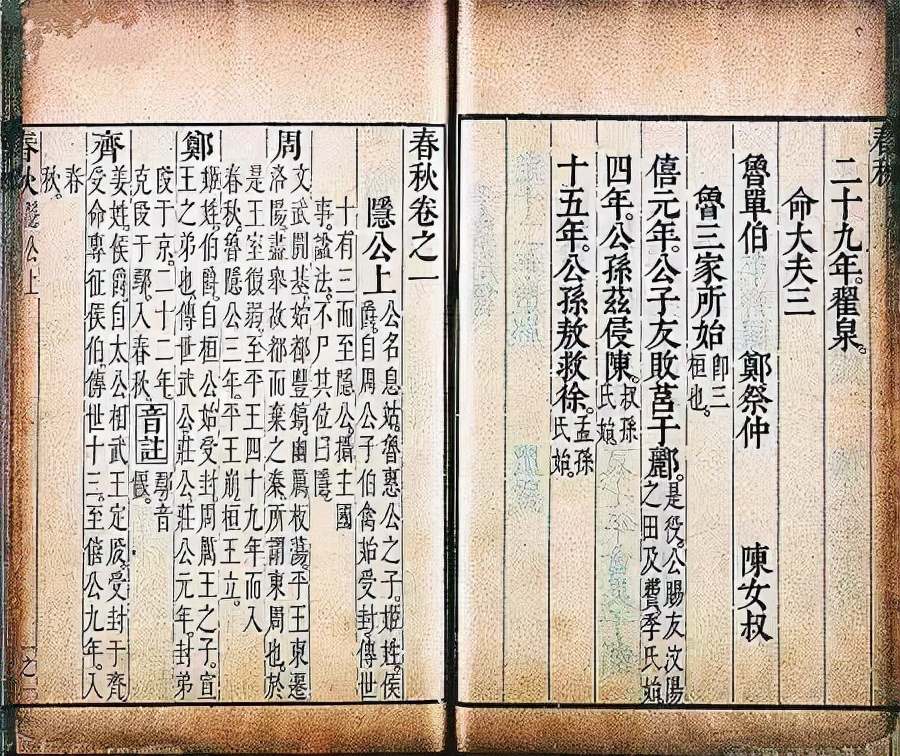 春秋
二十九年。翟泉。
命大夫三
魯單伯 鄭祭仲 陳女叔
魯三家所始 即三桓也。
僖元年。公子友敗莒于酈。是役。公賜友汶陽之田及費。季氏始
四年。公孫茲侵陳。叔孫氏始。
十五年。公孫敖救徐。孟孫氏始。
春秋卷之一
隱公上 公名息姑。魯惠公之子。姬姓。侯
爵。自周公子伯禽始受封。傳世
十有三而至隱公。攝主國
事。謚法。不尸其位曰隱。
周 文武開基。始都豐鎬。幽厲板蕩。平王東遷
洛陽。盡舉故都而棄之秦。所謂東周也。於
是王室微弱。至平王四十九年而入
春秋。魯隱公三年。平王崩。桓王立。
鄭 姬姓。伯爵。自桓公始受封。周厲王之子。宣
王之弟也。傳世武公莊公。莊公元年。封弟
段于京。二十二年。
克段于鄢。入春秋。音註 鄢音偃。
齊 姜姓。侯爵。自太公相武王定周。受封于齊。
受命專征侯伯。傳世十三。至僖公九年。入
春秋。
春秋 隱公上